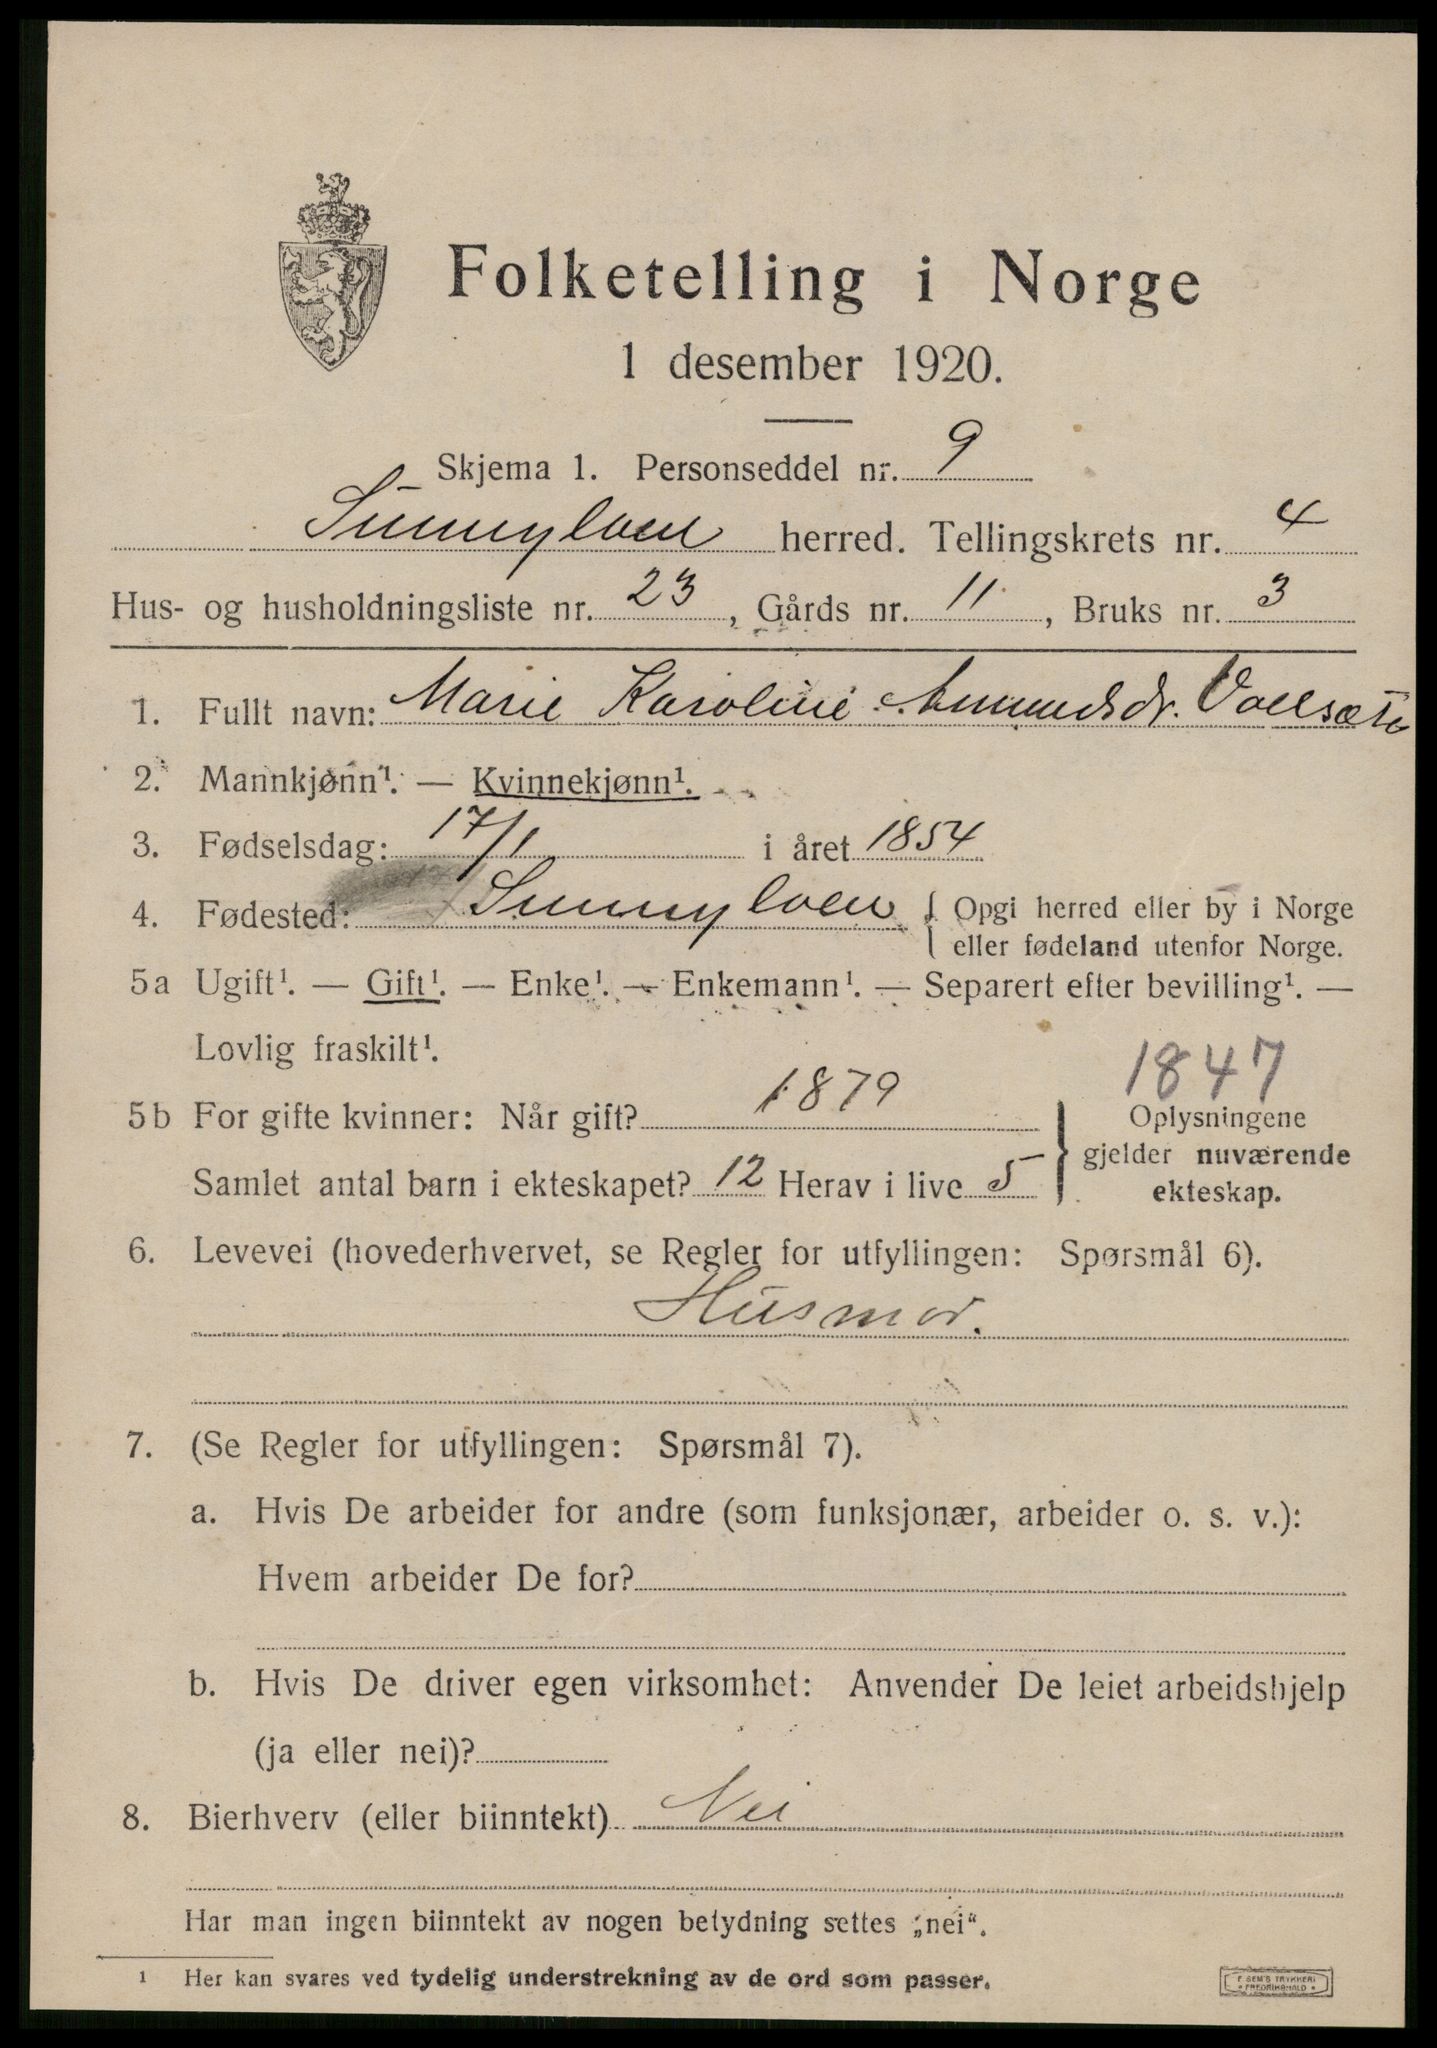 Folketelling i Norge
1 desember 1920.
Skjema 1. Personseddel nr. 9
Sunnylven herred. Tellingskrets nr. 4
Hus- og husholdningsliste nr. 23, Gårds nr. 11, Bruks nr. 3
1. Fullt navn: Marie Karoline Amundsdr.
2. Mannkjønn¹. — Kvinnekjønn¹.
3. Fødselsdag: 17/1 i året 1854
4. Fødested: Sunnylven { Opgi herred eller by i Norge
eller fødeland utenfor Norge.
5a Ugift¹. — Gift¹. — Enke¹. — Enkemann¹. — Separert efter bevilling¹. —
Lovlig fraskilt¹.
1847
5b For gifte kvinner: Når gift? 1879
Samlet antal barn i ekteskapet? 12 Herav i live 5
} Oplysningene
gjelder nuværende
ekteskap.
6. Levevei (hovederhvervet, se Regler for utfyllingen: Spørsmål 6).
Husmor.
7. (Se Regler for utfyllingen: Spørsmål 7).
a. Hvis De arbeider for andre (som funksjonær, arbeider o. s. v.):
Hvem arbeider De for?
b. Hvis De driver egen virksomhet: Anvender De leiet arbeidshjelp
(ja eller nei)?
8. Bierhverv (eller biinntekt) Nei
Har man ingen biinntekt av nogen betydning settes „nei“.
¹ Her kan svares ved tydelig understrekning av de ord som passer.
F. SEM'S TRYKKERI
• FREDRIKSHALD •